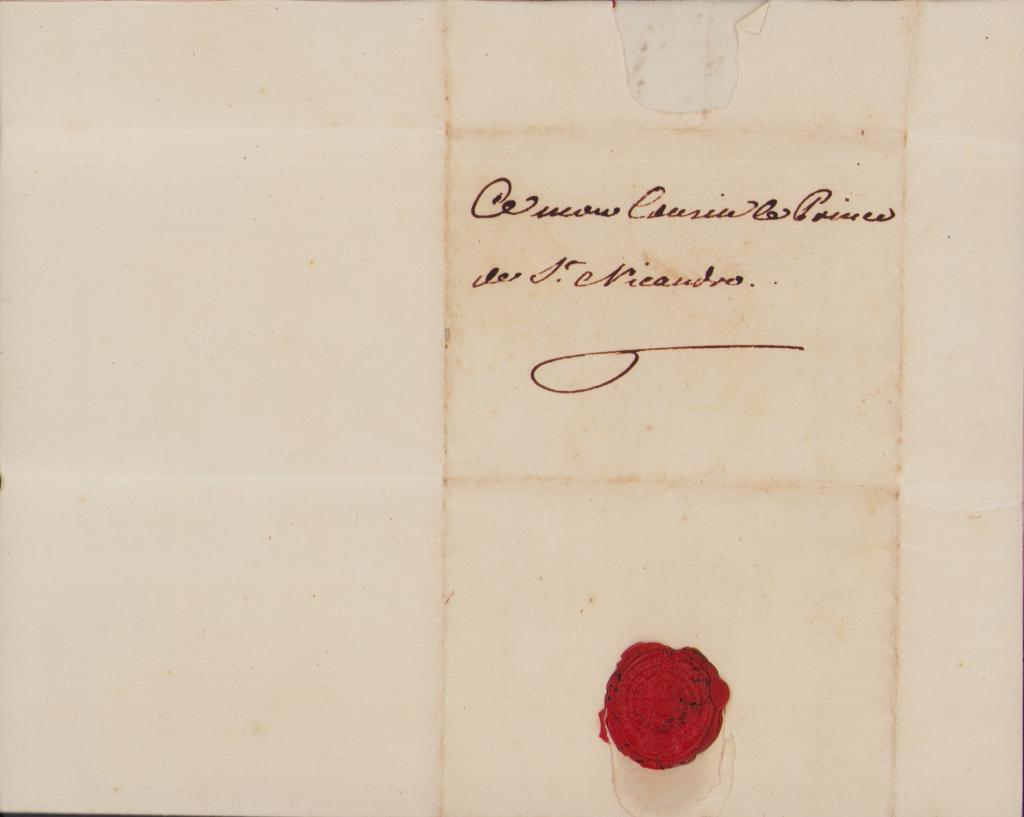 A mon Cousin le Prince
de St. Nicandro.